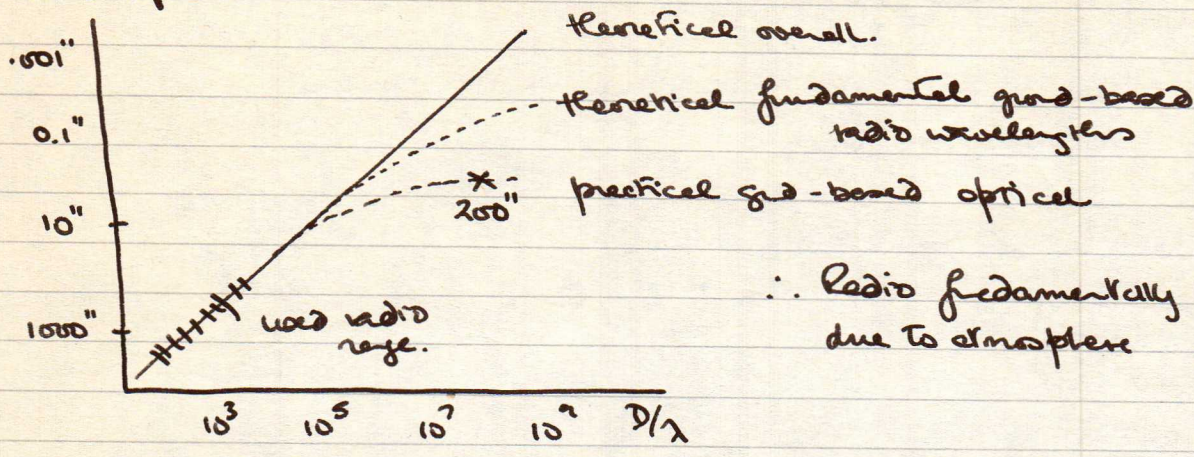 theoretical overall.
.001"
theoretical fundamental ground-based
radio wavelengths
0.1"
practical gnd-based optical
200"
10"
∴ Radio fundamentally
due to atmosphere
used radio
range.
1000"
10³ 10⁵ 10⁷ 10⁹ D/λ